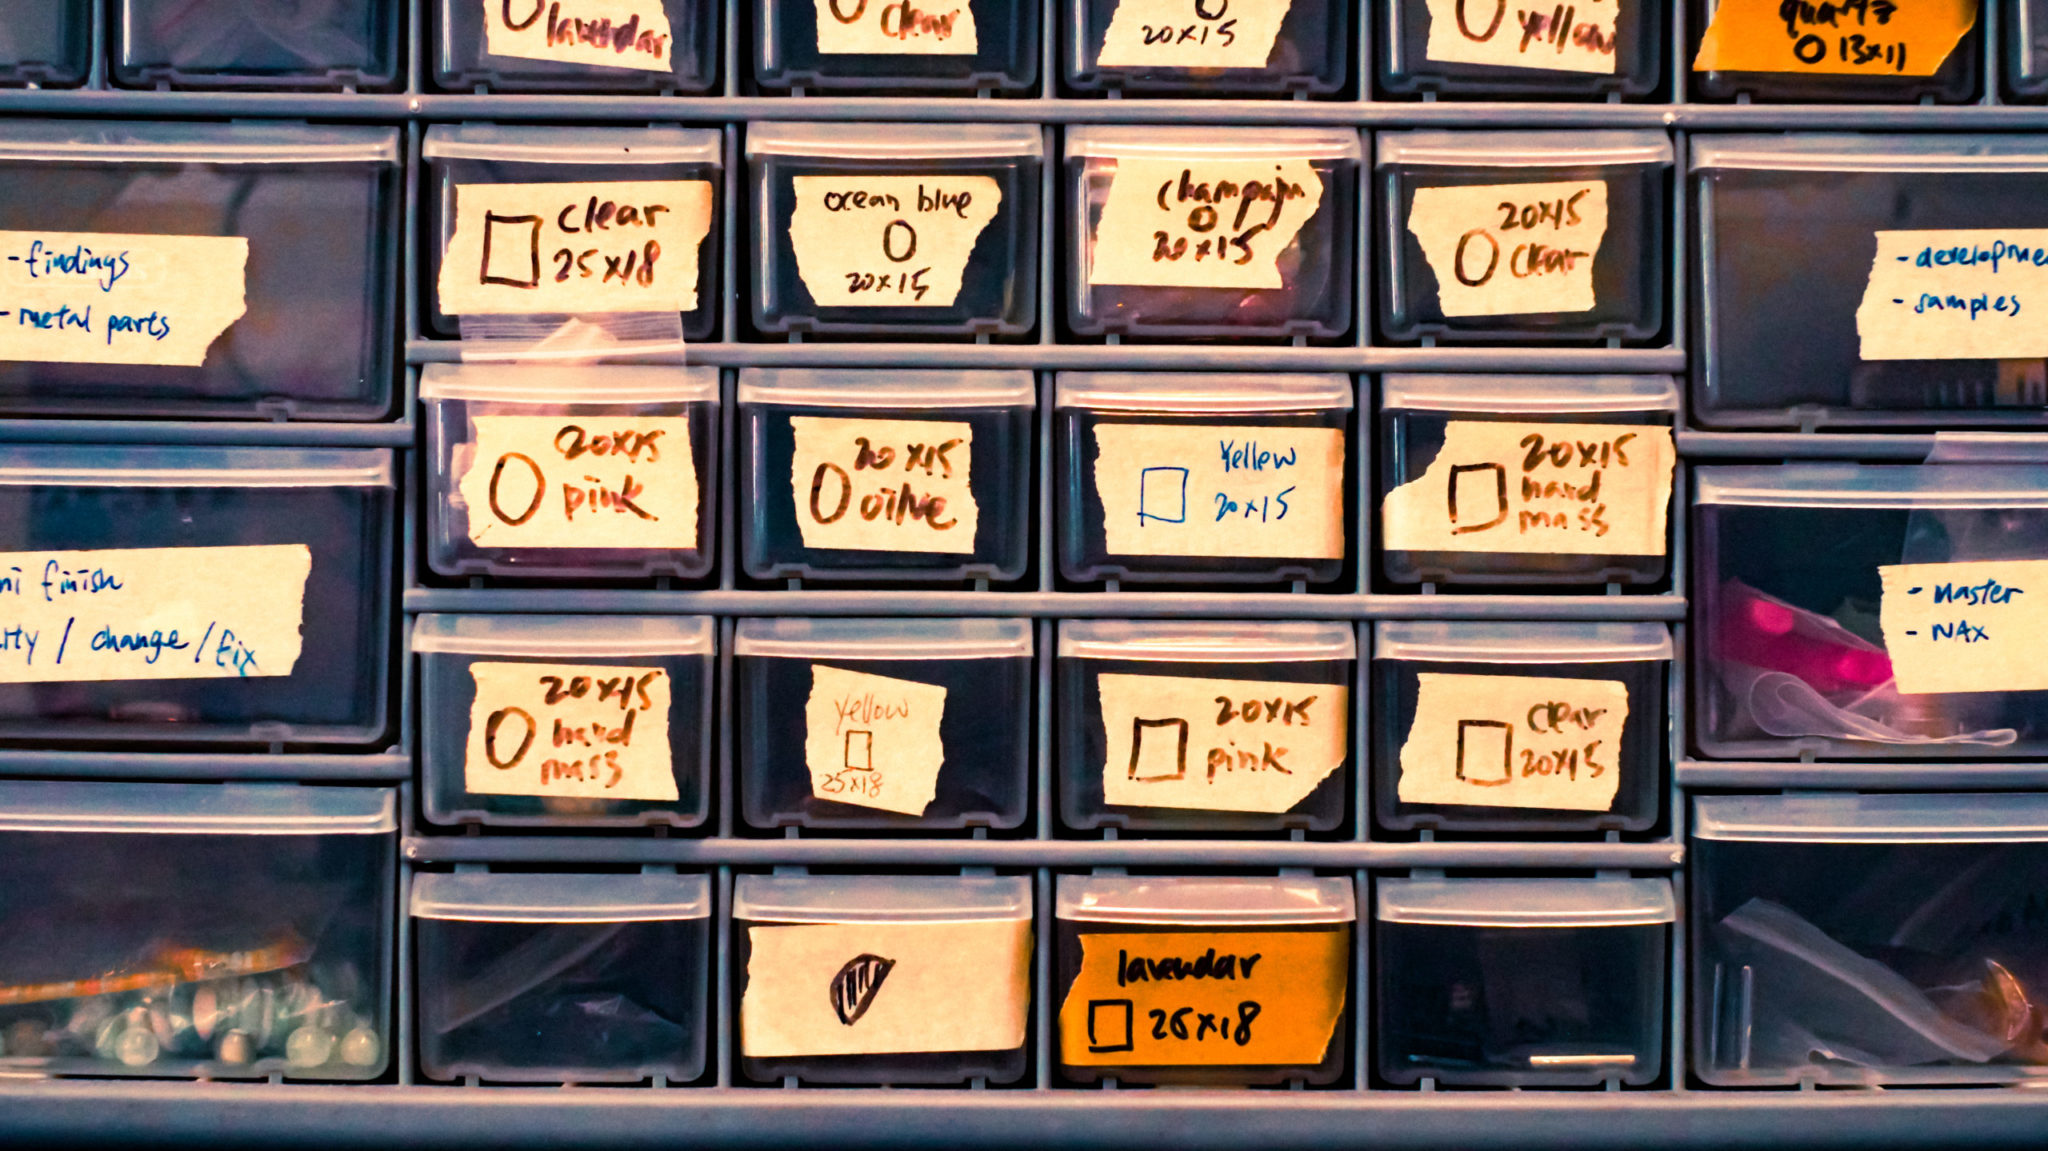 lavendar
clear
20x15
yellow
quartz
13x11
- findings
- metal parts
clear
25x18
ocean blue
20x15
champajn
20x15
20x15
clear
- developme
- samples
20x15
pink
20x15
oilve
Yellow
20x15
20x15
hard
mass
finish
/ change / fix
- Master
- NAX
20x15
hard
mass
Yellow
25x18
20x15
pink
clear
20x15
lavendar
25x18